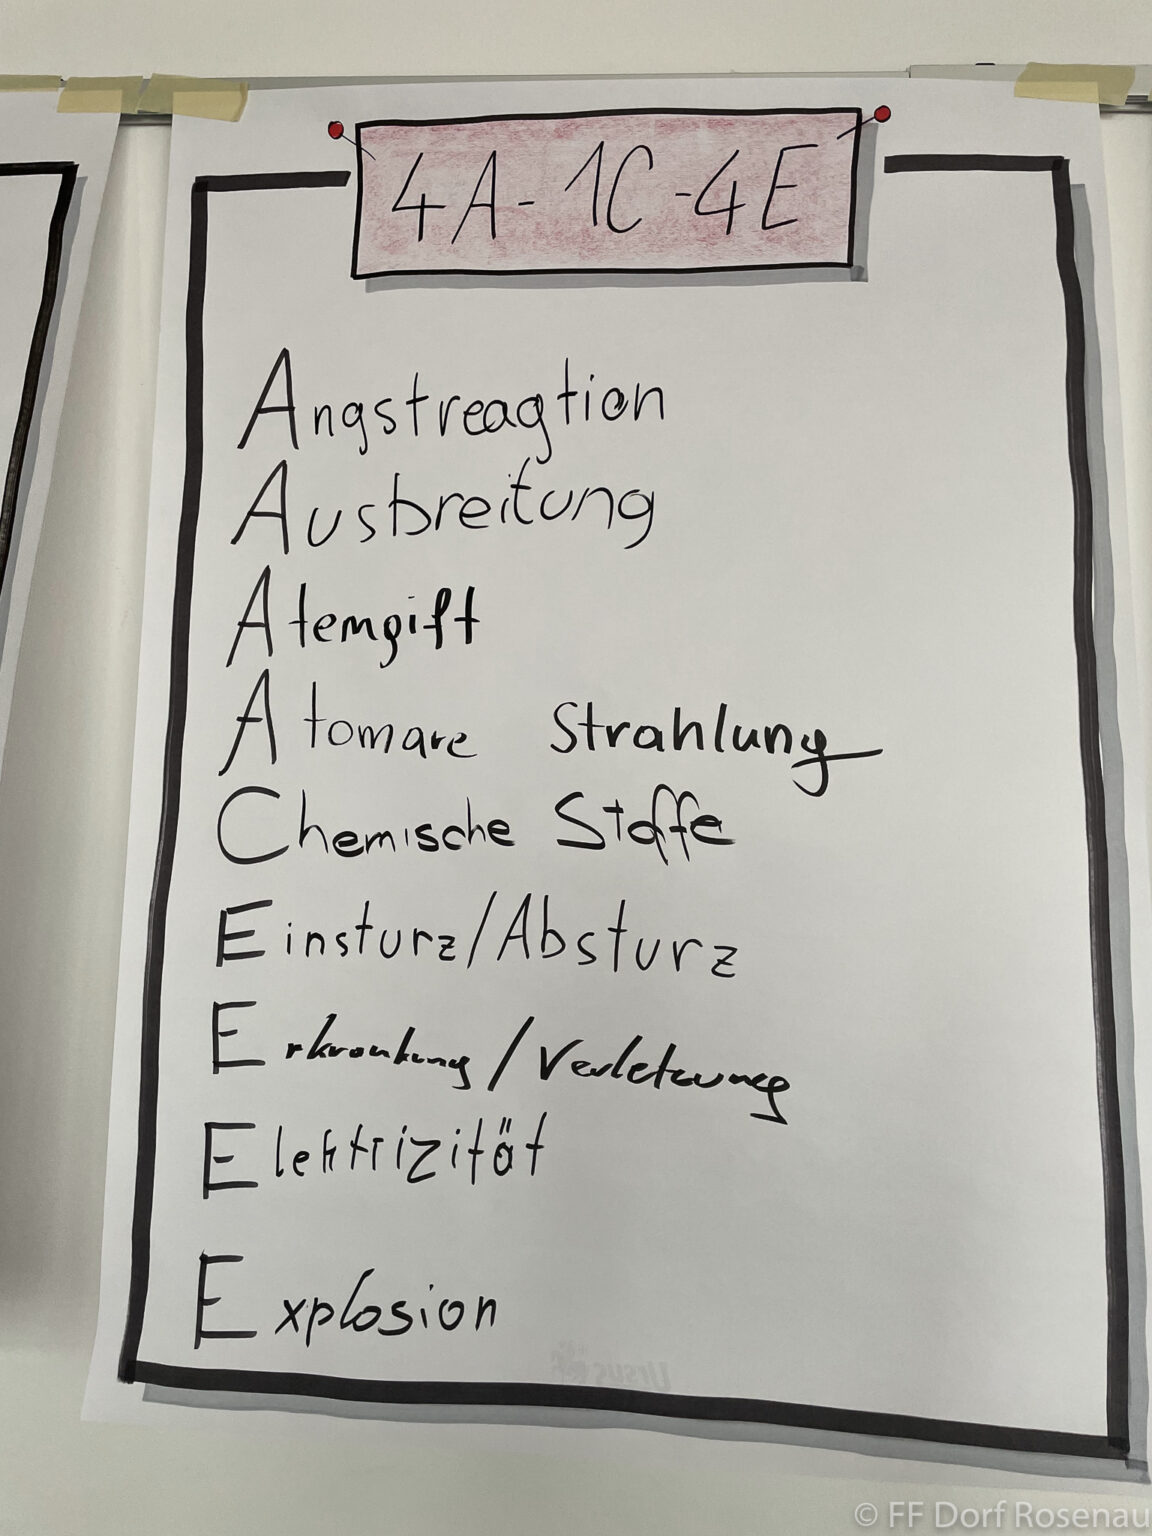 4A - 1C - 4E
Angstreagtion
Ausbreitung
Atemgift
Atomare Strahlung
Chemische Stoffe
Einsturz/Absturz
Erkrankung/Verletzung
Elektrizität
Explosion
© FF Dorf Rosenau